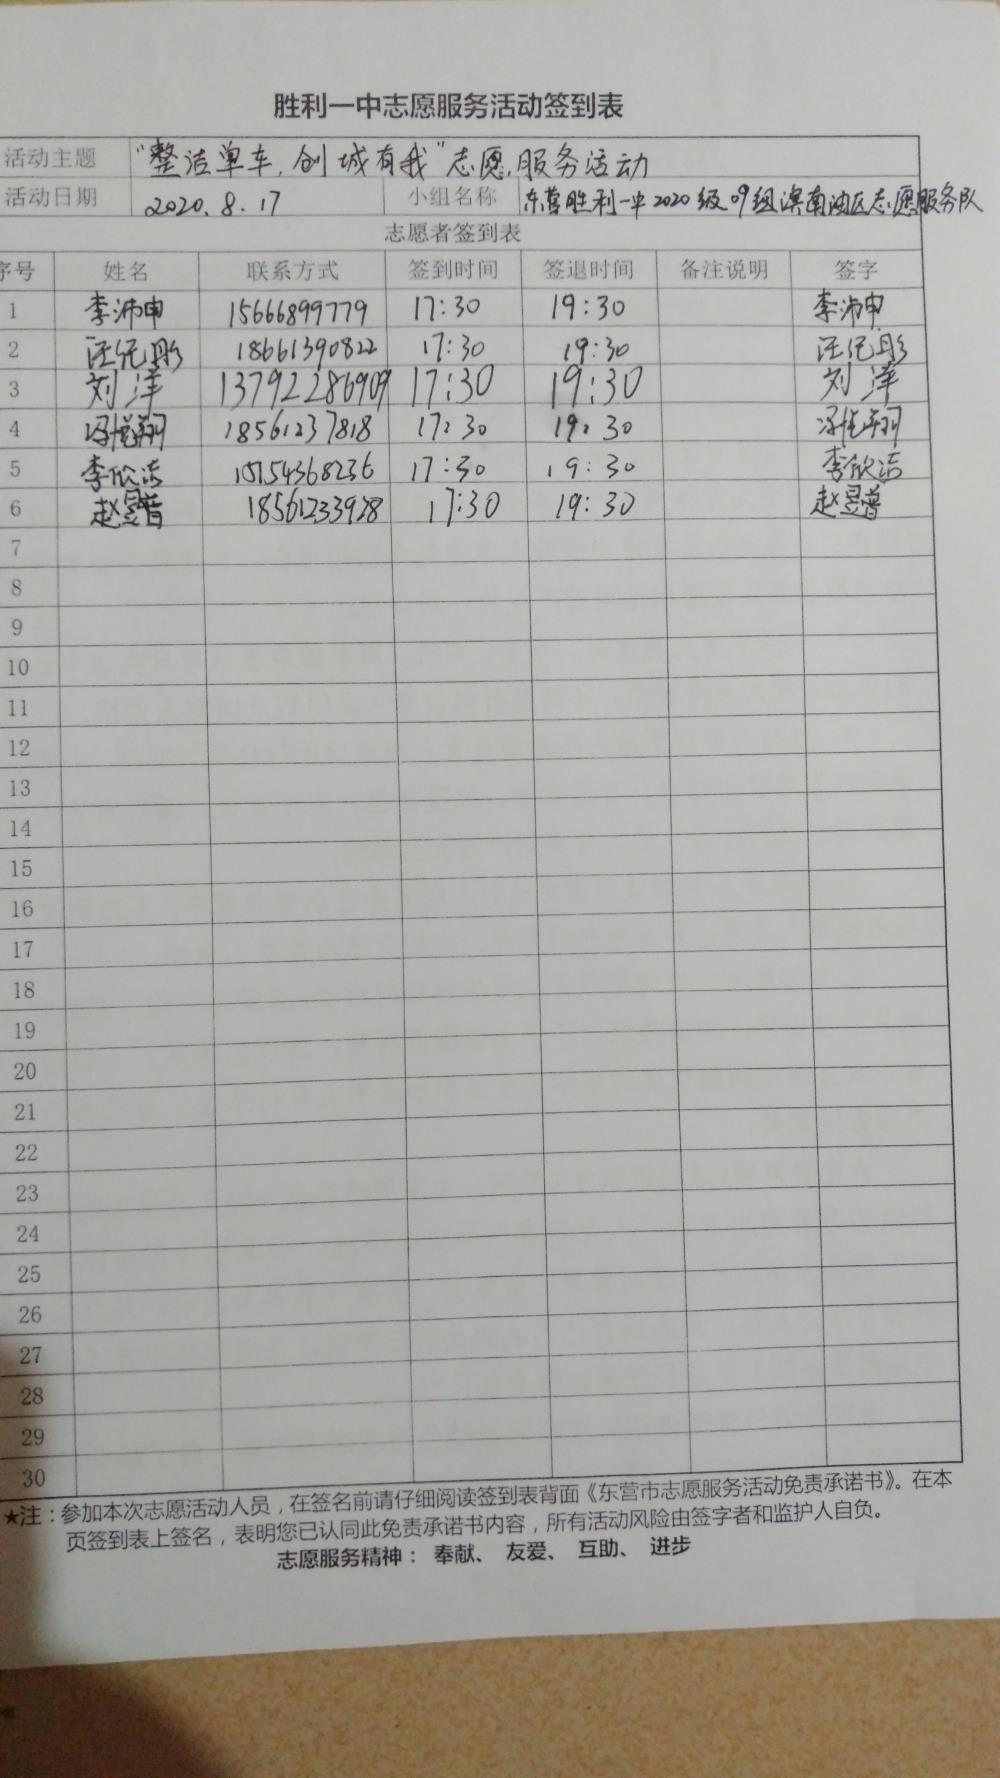 胜利一中志愿服务活动签到表
活动主题 "整洁单车,创城有我"志愿服务活动
活动日期 2020.8.17 小组名称 东营胜利一中2020级09组滨南油区志愿服务队
志愿者签到表
序号 姓名 联系方式 签到时间 签退时间 备注说明 签字
1 李沛申 15666899779 17:30 19:30 李沛申
2 汪纪彤 18661390822 17:30 19:30 汪纪彤
3 刘洋 13792286909 17:30 19:30 刘洋
4 冯悦翔 18561237818 17:30 19:30 冯悦翔
5 李欣洁 15154368236 17:30 19:30 李欣洁
6 赵昱普 18561233928 17:30 19:30 赵昱普
7
8
9
10
11
12
13
14
15
16
17
18
19
20
21
22
23
24
25
26
27
28
29
30
★注:参加本次志愿活动人员,在签名前请仔细阅读签到表背面《东营市志愿服务活动免责承诺书》。在本
页签到表上签名,表明您已认同此免责承诺书内容,所有活动风险由签字者和监护人自负。
志愿服务精神: 奉献、 友爱、 互助、 进步